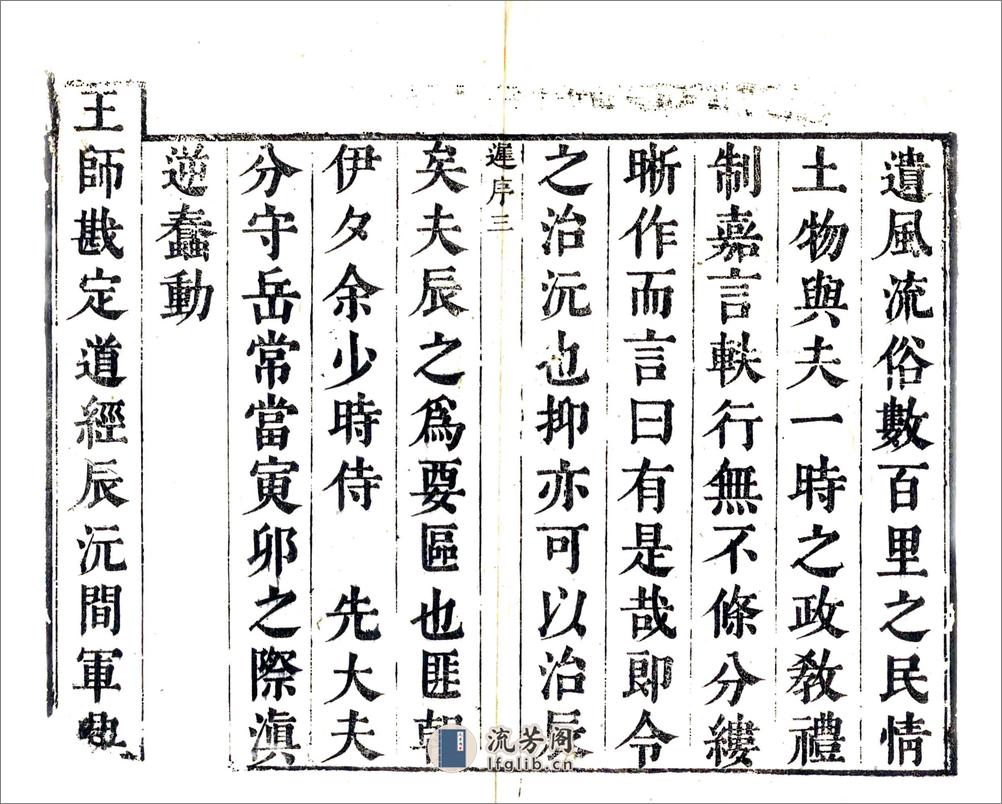 遺風流俗數百里之民情
土物與夫一時之政教禮
制嘉言軼行無不條分縷
晰作而言曰有是哉卽令
之治沅也抑亦可以治辰
遲序三
矣夫辰之爲要區也匪朝
伊夕余少時侍　先大夫
分守岳常當寅卯之際滇
逆蠢動
王師戡定道經辰沅間軍
流芳阁
lfglib.cn